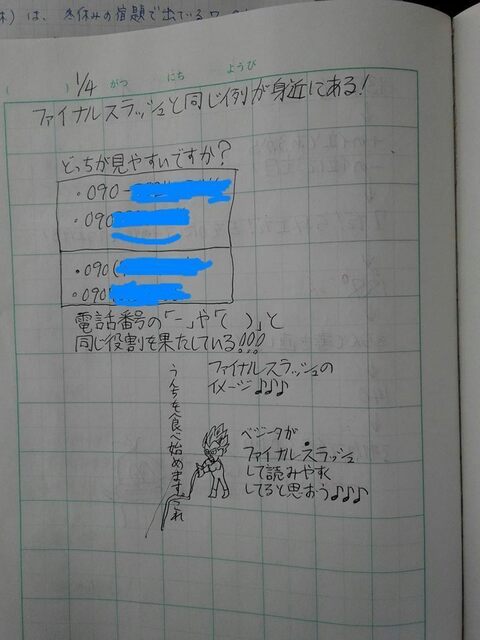 休）は、冬休みの宿題で出ている
1/4
がつ にち ようび
ファイナルスラッシュと同じ例が身近にある！
どっちが見やすいですか？
・090-
・090
・090(
・090
電話番号の「-」や「( )」と
同じ役割を果たしている!!!
ファイナルスラッシュの
イメージ♪♪♪
うんちを食べ始めます
ベジータが
ファイナル・スラッシュ
して読みやすく
してると思おう♪♪♪